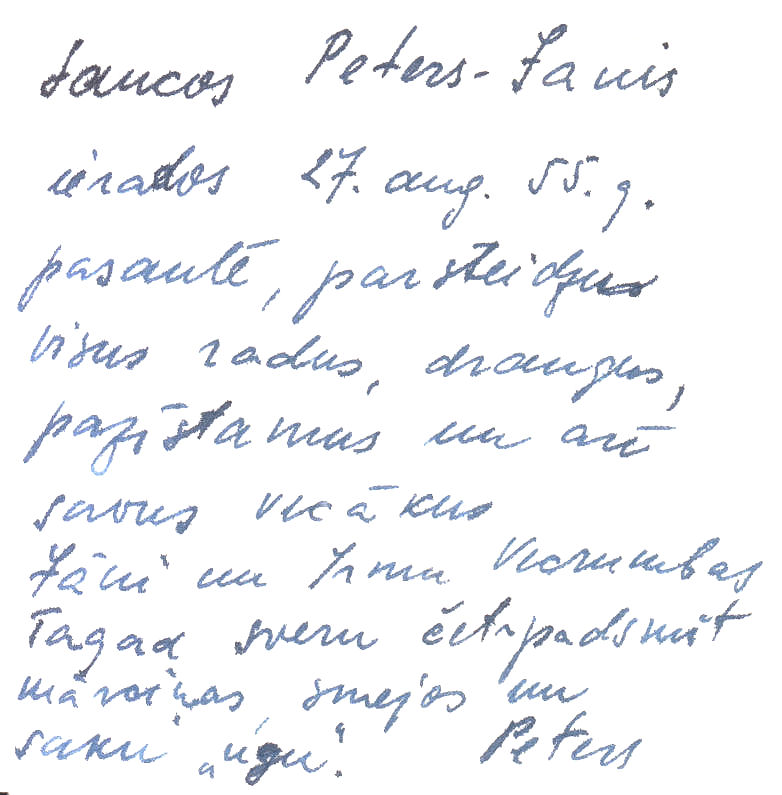 saucos Peters-Janis
ierados 27. aug. 55. g.
pasaulē, pārsteidzus
visus radus, draugus,
pazīstamus un arī
savus vecākus
Jāni un Irmu Vecrumbas
Tagad sveru četrpadsmit
mārciņas, smejos un
saku „ugu".   Peters